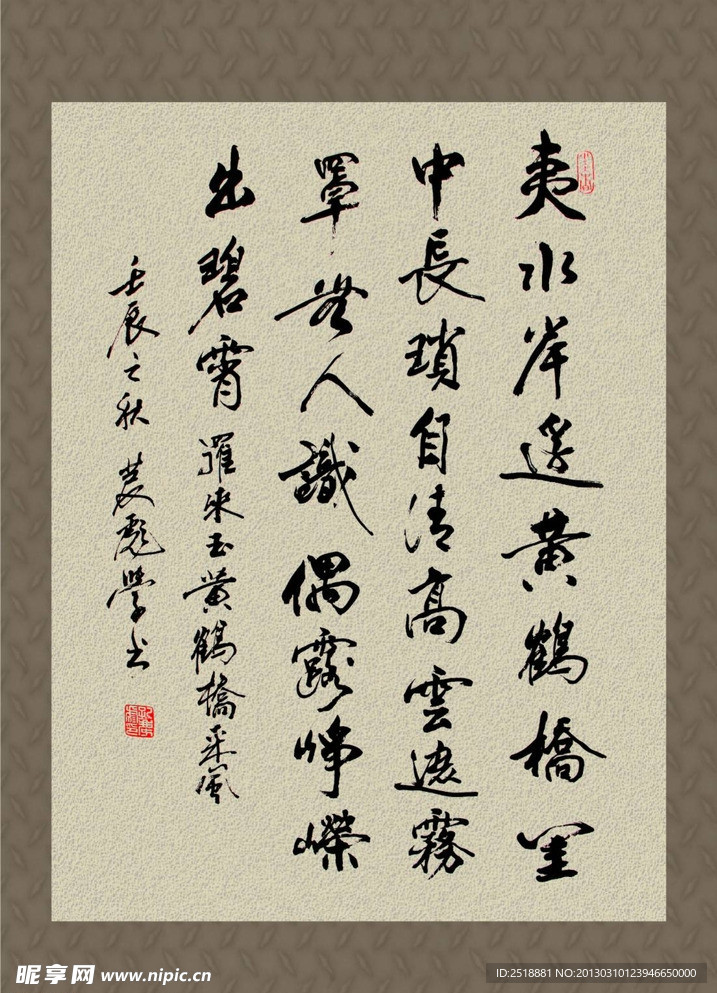 夷水岸邊黄鶴橋閨
中長瑣自清高雲遮霧
罩無人識偶露崢嶸
出碧霄 羅來玉黄鶴橋采風
壬辰之秋 彪學書
昵享网 www.nipic.cn
ID:2518881 NO:20130310123946650000